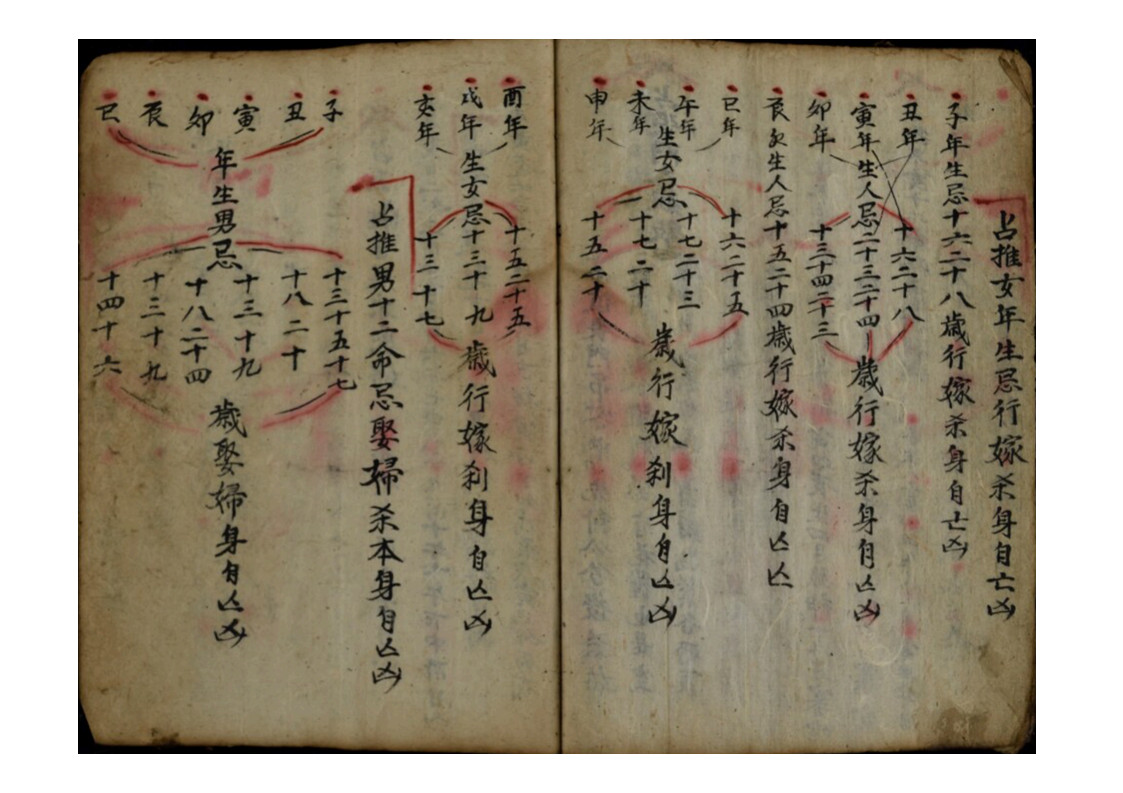 占推女年生忌行嫁杀身自亡凶
子年生忌十六二十八歲行嫁杀身自亡凶
丑年 十六二十八
寅年生人忌二十三二十四歲行嫁杀身自亡凶
卯年 十三十四二十三
辰年生人忌十五二十四歲行嫁杀身自亡凶
巳年 十六二十五
午年 十七二十三
生女忌 歲行嫁刹身自亡凶
未年 十七二十
申年 十五二十
酉年 十五二十五
戌年生女忌十三十九歲行嫁刹身自亡凶
亥年 十三十七
占推男十二命忌娶婦杀本身自亡凶
子 十三十五十七
丑 十八二十
寅 十三十九
年生男忌 歲娶婦身自亡凶
卯 十八二十四
辰 十三十九
巳 十四十六